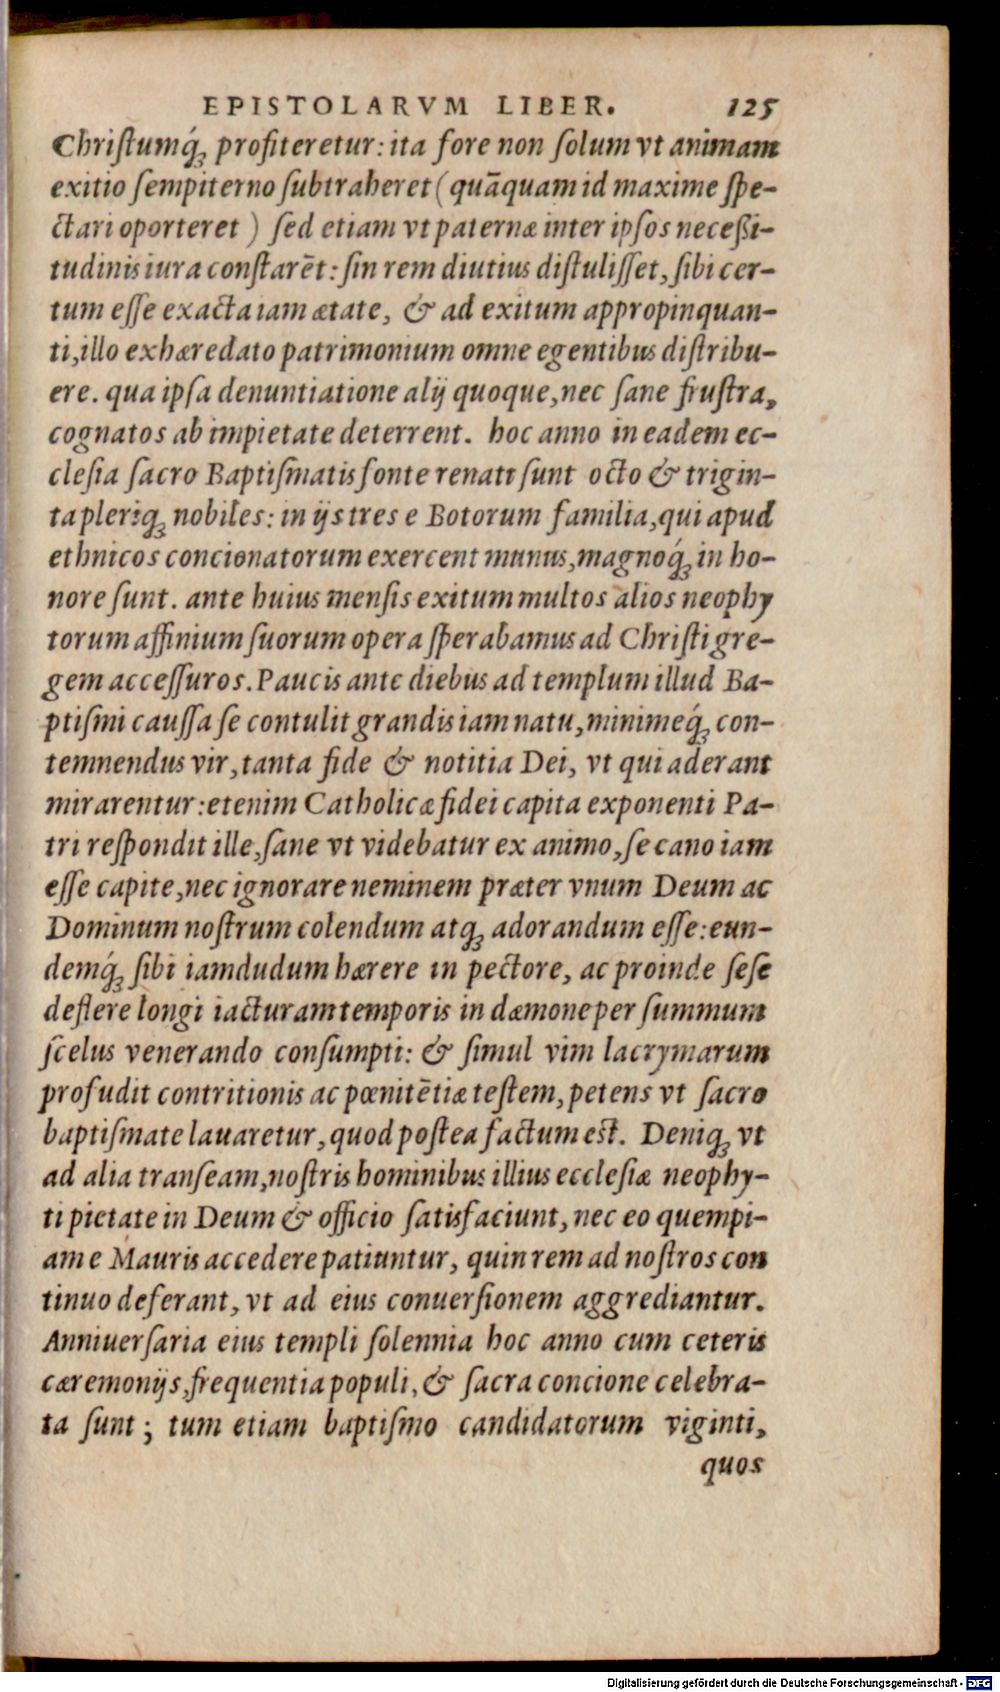 EPISTOLARVM LIBER. 125
Chriſtumq́ꝫ profiteretur: ita fore non ſolum vt animam
exitio ſempiterno ſubtraheret (quãquam id maxime ſpe-
ctari oporteret) ſed etiam vt paternæ inter ipſos neceßi-
tudinis iura conſtarẽt: ſin rem diutius diſtuliſſet, ſibi cer-
tum eſſe exacta iam ætate, & ad exitum appropinquan-
ti, illo exhæredato patrimonium omne egentibus diſtribu-
ere. qua ipſa denuntiatione alij quoque, nec ſane fruſtra,
cognatos ab impietate deterrent. hoc anno in eadem ec-
cleſia ſacro Baptiſmatis fonte renati ſunt octo & trigin-
ta pleriqꝫ nobiles: in ijs tres e Botorum familia, qui apud
ethnicos concionatorum exercent munus, magnoq́ꝫ in ho-
nore ſunt. ante huius menſis exitum multos alios neophy
torum affinium ſuorum opera ſperabamus ad Chriſti gre-
gem acceſſuros. Paucis ante diebus ad templum illud Ba-
ptiſmi cauſſa ſe contulit grandis iam natu, minimeq́ꝫ con-
temnendus vir, tanta fide & notitia Dei, vt qui aderant
mirarentur: etenim Catholicæ fidei capita exponenti Pa-
tri reſpondit ille, ſane vt videbatur ex animo, ſe cano iam
eſſe capite, nec ignorare neminem præter vnum Deum ac
Dominum noſtrum colendum atqꝫ adorandum eſſe: eun-
demq́ꝫ ſibi iamdudum hærere in pectore, ac proinde ſeſe
deflere longi iacturam temporis in dæmone per ſummum
ſcelus venerando conſumpti: & ſimul vim lacrymarum
profudit contritionis ac pœnitẽtiæ teſtem, petens vt ſacro
baptiſmate lauaretur, quod poſtea factum eſt. Deniqꝫ vt
ad alia tranſeam, noſtris hominibus illius eccleſiæ neophy-
ti pietate in Deum & officio ſatisfaciunt, nec eo quempi-
am e Mauris accedere patiuntur, quin rem ad noſtros con
tinuo deferant, vt ad eius conuerſionem aggrediantur.
Anniuerſaria eius templi ſolennia hoc anno cum ceteris
cæremonijs, frequentia populi, & ſacra concione celebra-
ta ſunt; tum etiam baptiſmo candidatorum viginti,
quos
Digitalisierung gefördert durch die Deutsche Forschungsgemeinschaft - DFG